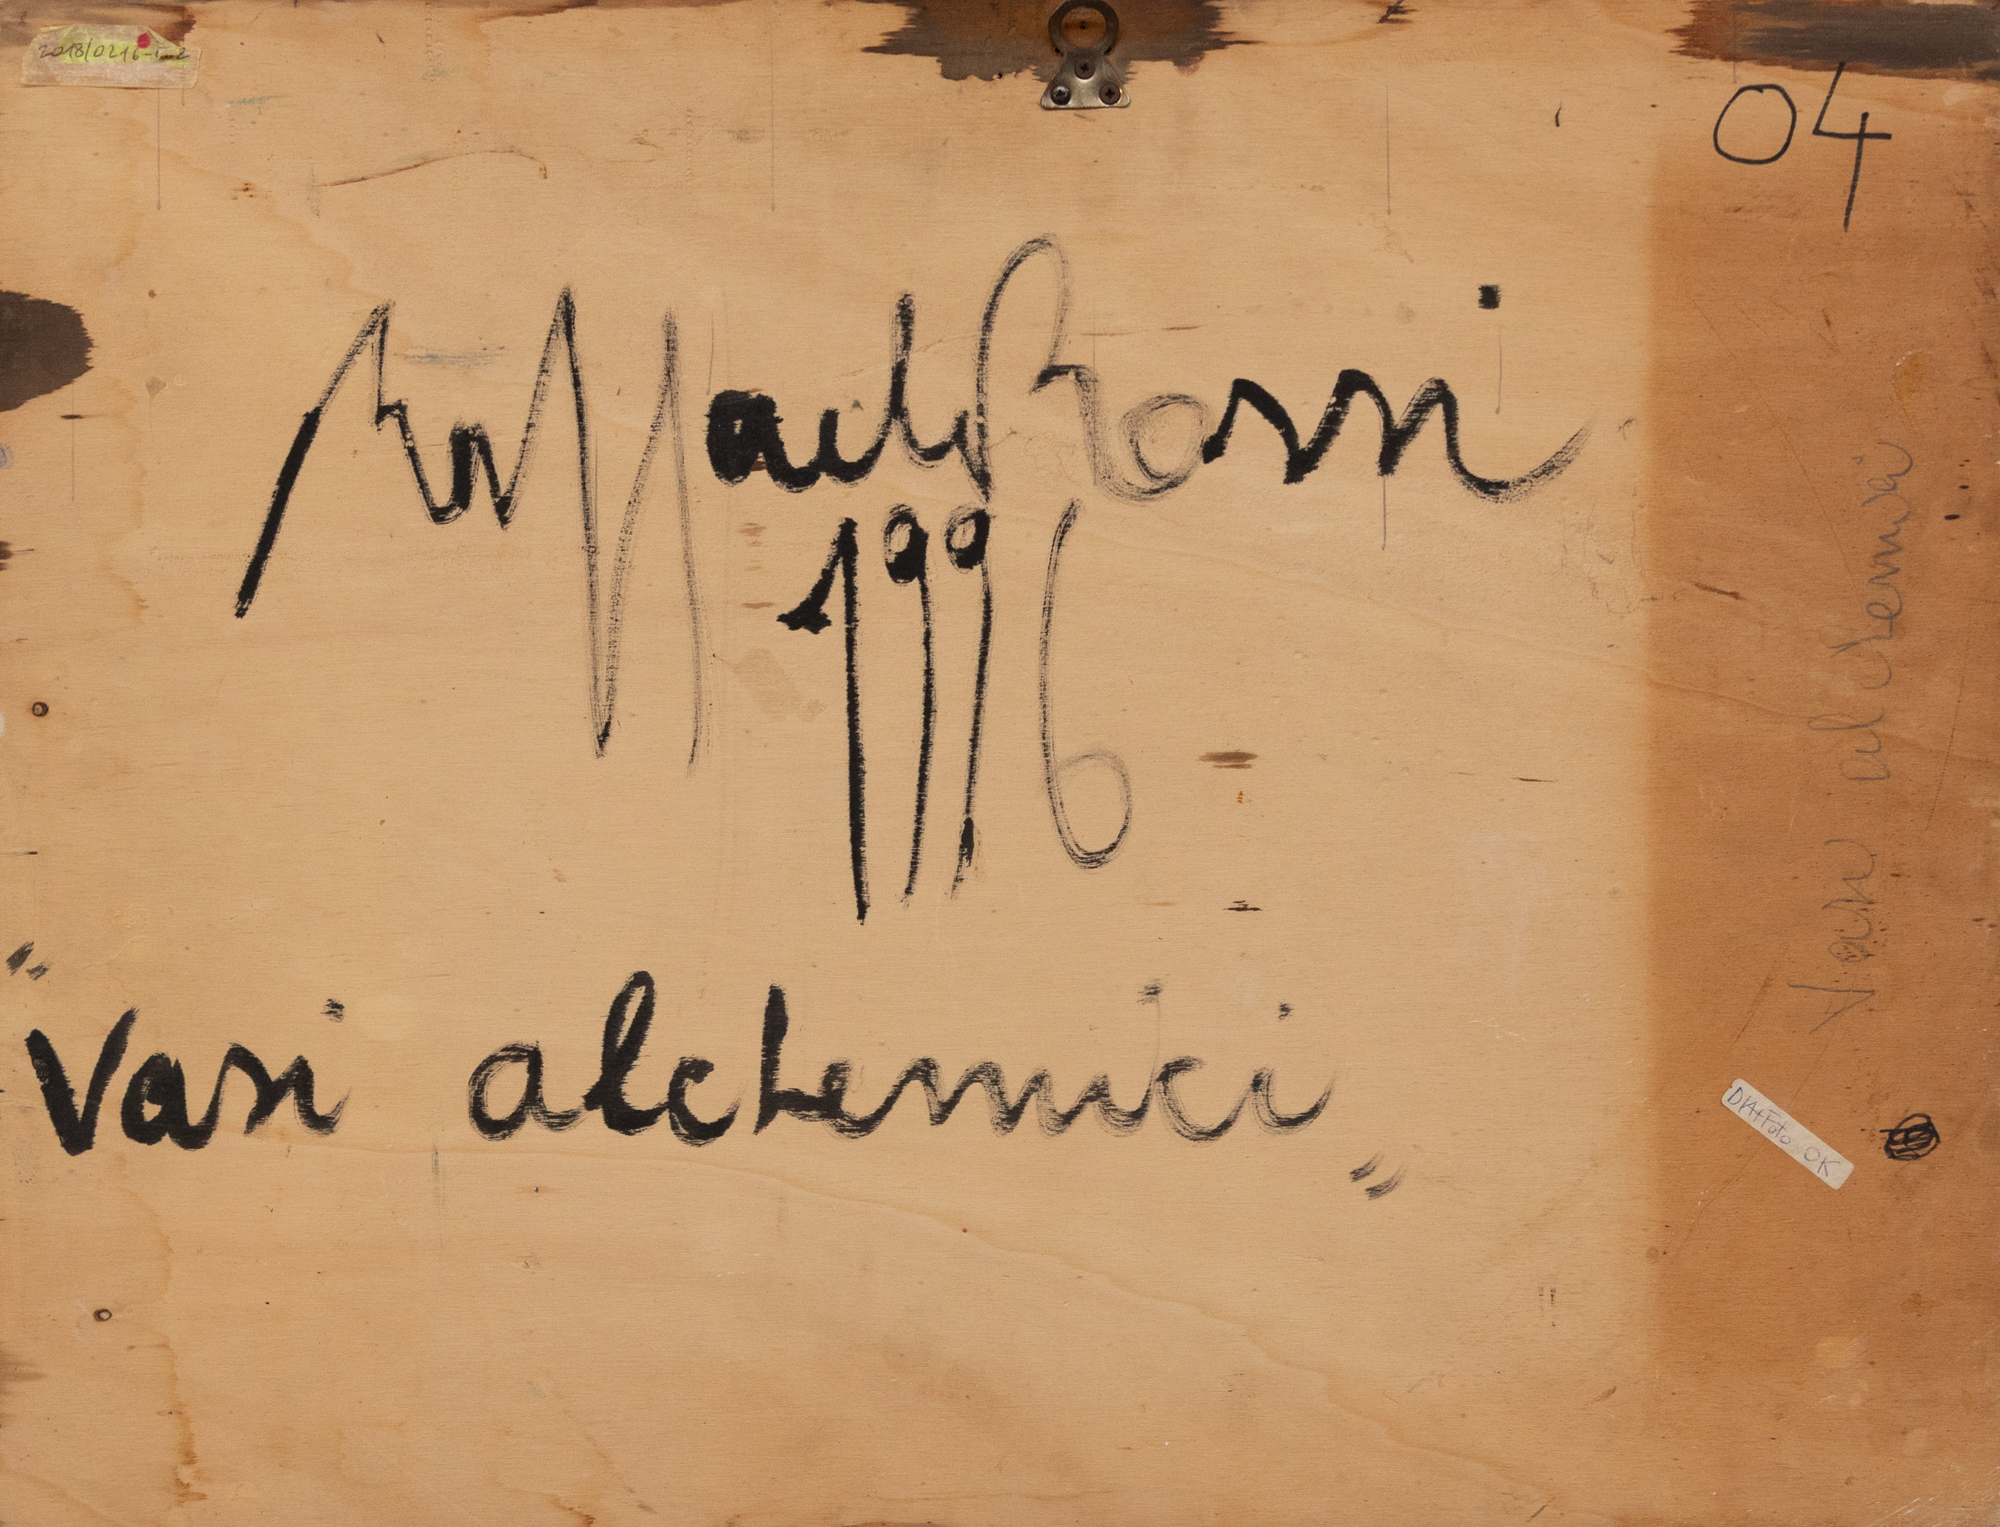 2018/0216-1-2
04
Raffaele Rossi
1996
"Vasi alchemici"
Vasi alchemici
DIA+Foto OK